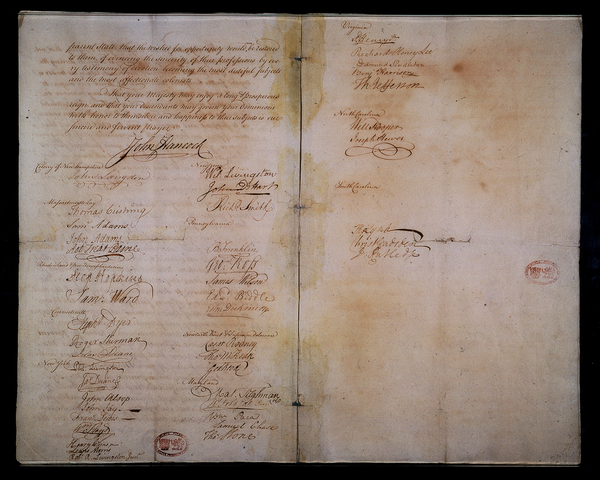 parent State, that the wishes for opportunity would be restored
to them, of evincing the sincerity of their professions by eve-
ry testimony of devotion becoming the most dutiful subjects
and the most affectionate colonists.
That your Majesty may enjoy a long & prosperous
reign, and that your descendants may govern your Dominions
with honor to themselves and happiness to their subjects is our
sincere and fervent prayer.
John Hancock
Colony of New hampshire
John Langdon
Massachusetts bay
Thomas Cushing
Saml Adams
John Adams
Rob Treat Paine
Step Hopkins
Sam: Ward
Connecticut
Elipht Dyer
Roger Sherman
Silas Deane
New York
Phil. Livingston
Jas Duane
John Alsop
John Jay
Wm Floyd
Lewis Morris
Robt R Livingston Junr
Wil: Livingston
John DeHart
Richd Smith
Pennsylvania
B Franklin
Geo: Ross
James Wilson
Edwd Biddle
John Dickinson
Caesar Rodney
Tho M:Kean
Maryland
Mat. Tilghman
Wm Paca
Samuel Chase
Tho Stone
Virginia
P. Henry Jr
Richard Henry Lee
Edmund Pendleton
Benj Harrison
Th: Jefferson
North Carolina
Will Hooper
Joseph Hewes
South Carolina
Chr Gadsden
J. Rutledge